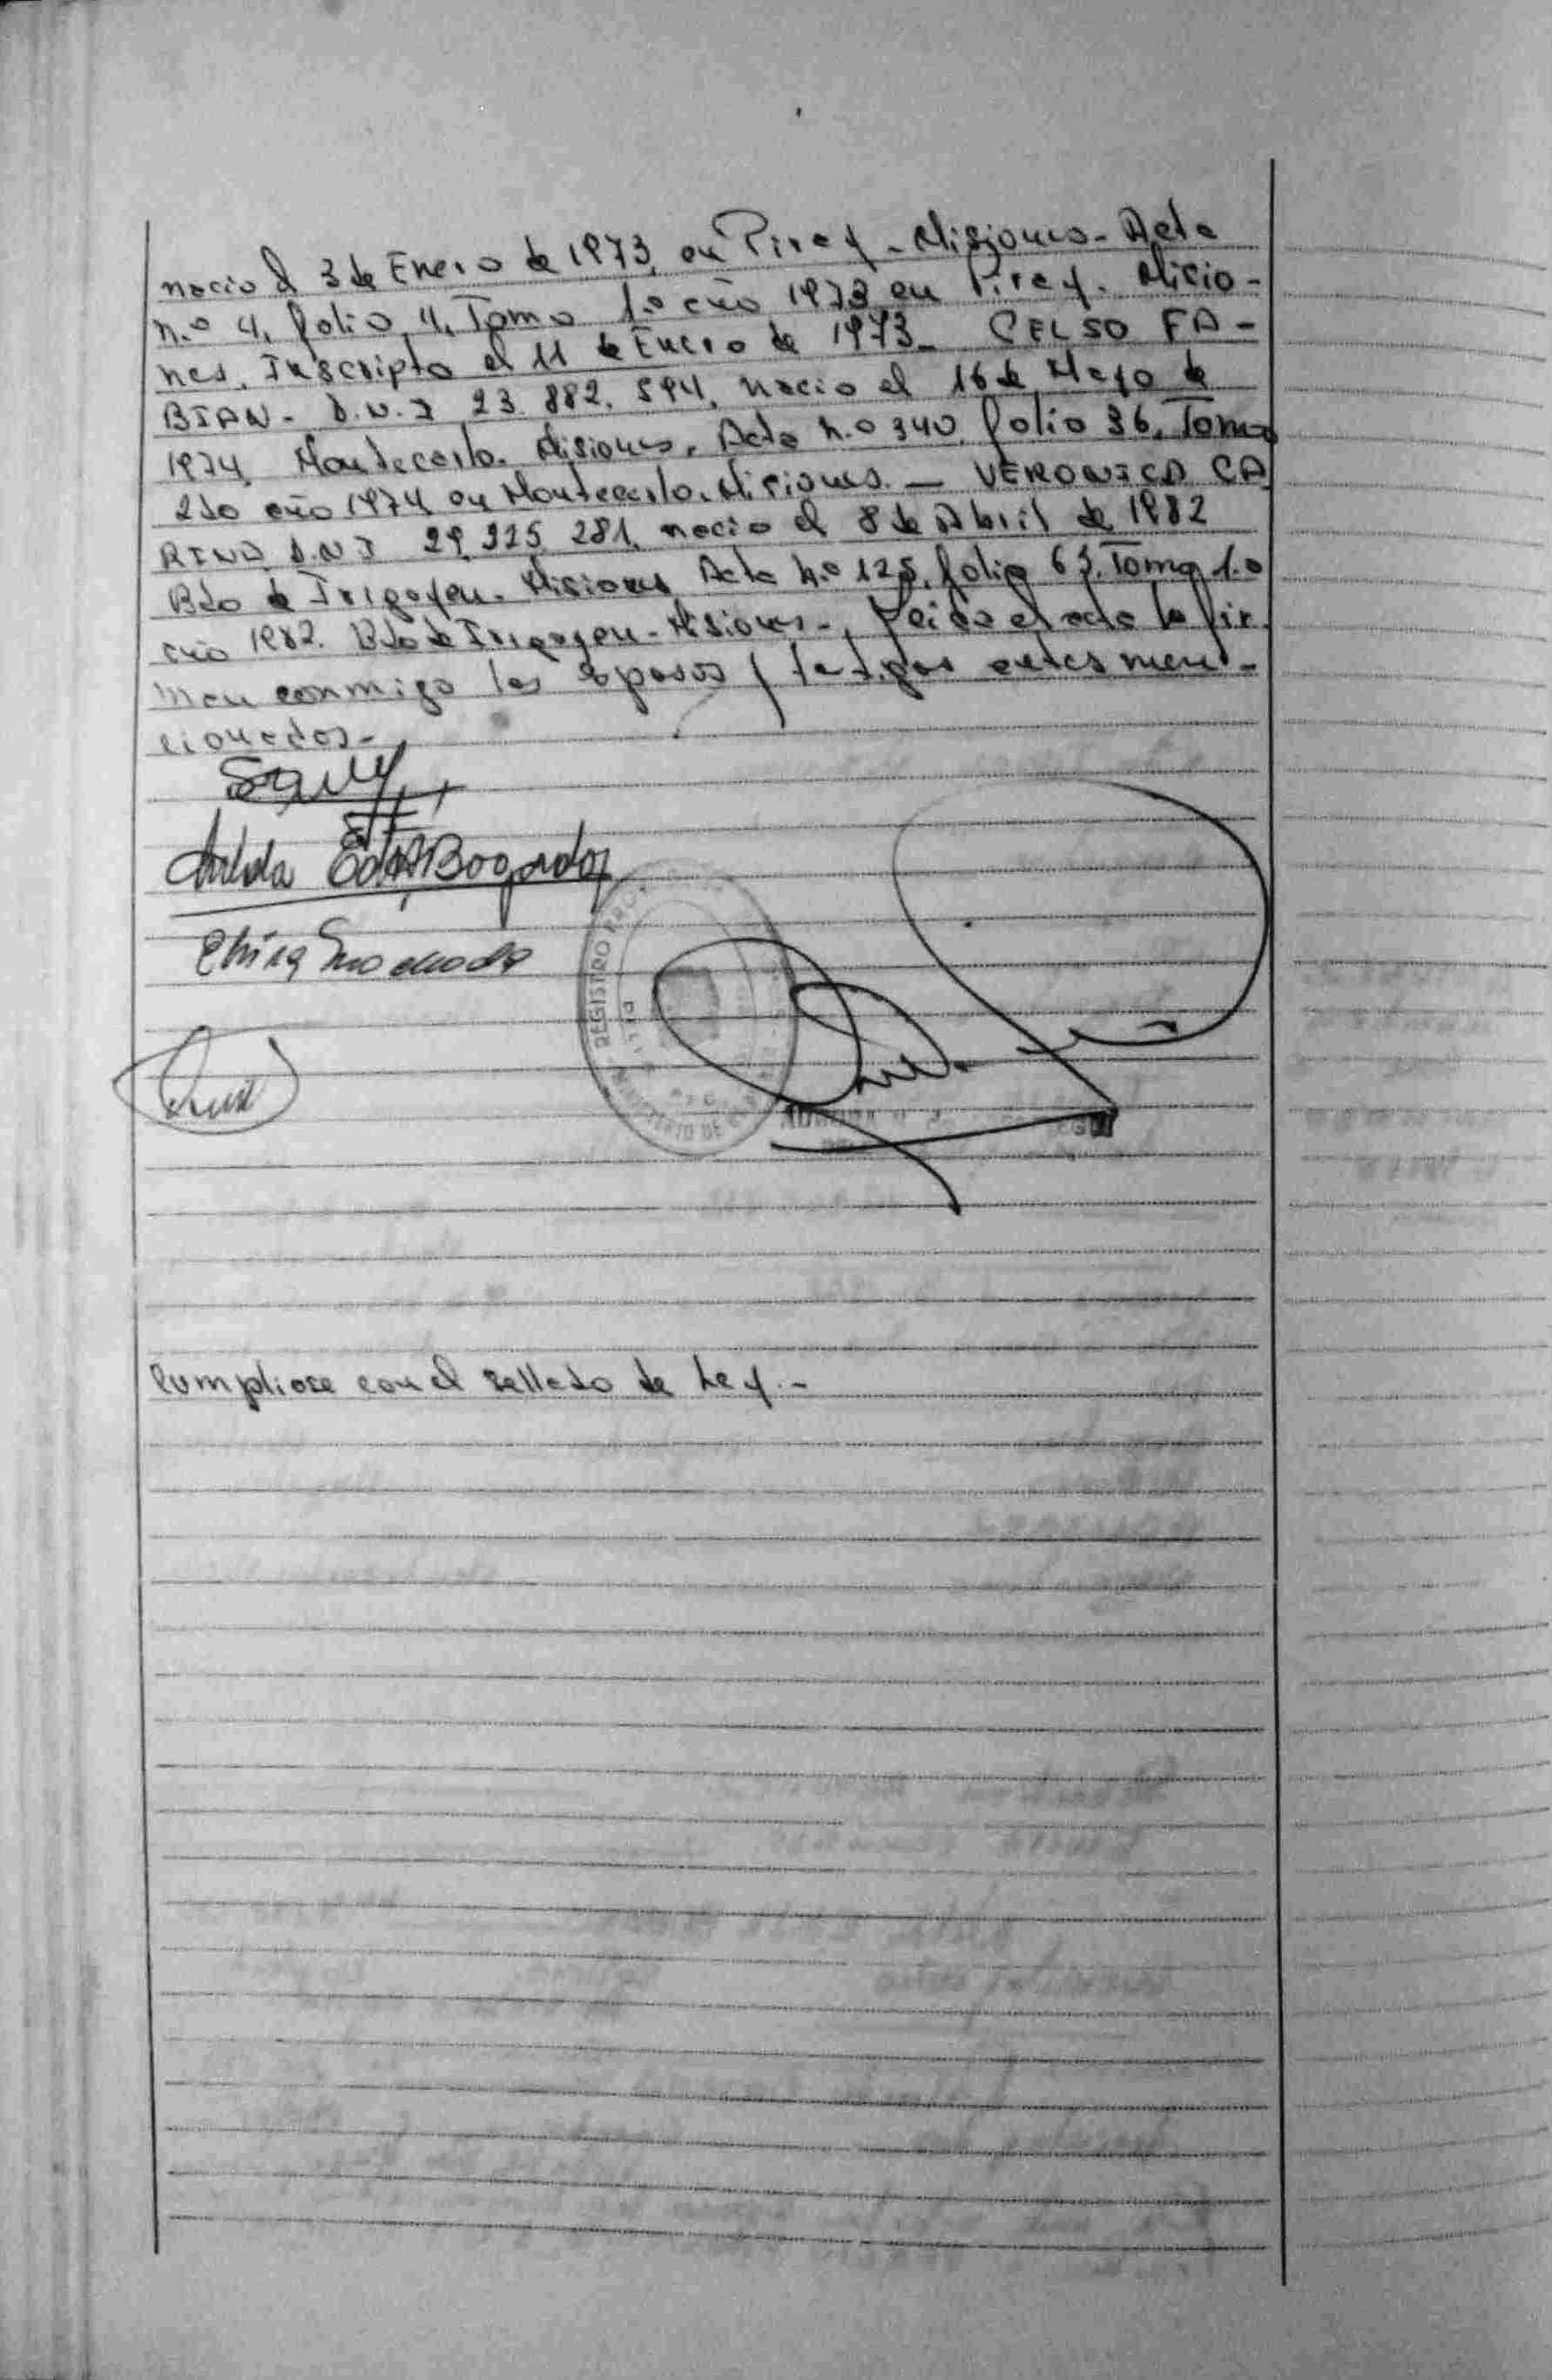 nacio el 3 de Enero de 1973, en Piray - Misiones - Acta
n.º 4, folio 4, Tomo 1.º año 1973 en Piray. Misio-
nes. Inscripto el 11 de Enero de 1973 - CELSO FA-
BIAN - D.N.I 23.882.594, nacio el 16 de Mayo de
1974, Montecarlo. Misiones, Acta n.º 340, folio 36, Tomo
2do año 1974 en Montecarlo. Misiones. - VERONICA CA
RINA D.N.I 29.325.281, nacio el 8 de Abril de 1982
Bdo de Irigoyen - Misiones Acta n.º 125, folio 63, Tomo 1.º
año 1982. Bdo de Irigoyen - Misiones -, Leida el acta la fir-
man conmigo los esposos y testigos antes men-
cionados -
Edit Bogado
REGISTRO
MINISTERIO DE
Cumpliose con el sellado de Ley. -